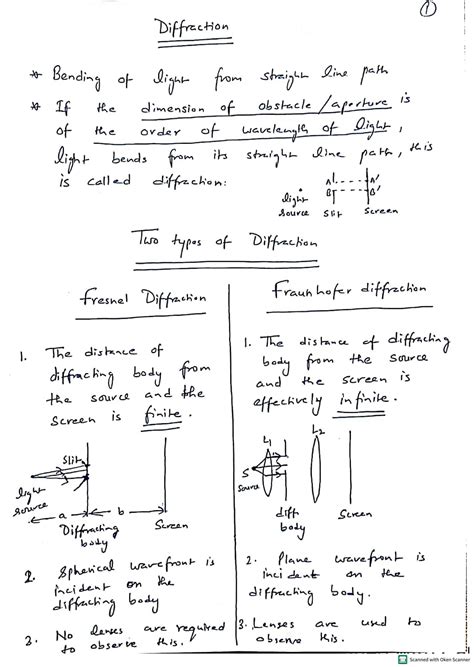 1
Diffraction
* Bending of light from straight line path
* If the dimension of obstacle/aperture is
of the order of wavelength of light,
light bends from its straight line path, this
is called diffraction:
A A'
B B'
light
source slit screen
Two types of Diffraction
Fresnel Diffraction
1. The distance of
diffracting body from
the source and the
screen is finite.
Slit
light
source
a b
Diffracting
body
Screen
2. Spherical wavefront is
incident on the
diffracting body
3. No lenses are required
to observe this.
Fraunhofer diffraction
1. The distance of diffracting
body from the source
and the screen is
effectively infinite.
L1 L2
S
source
diff
body
Screen
2. Plane wavefront is
incident on the
diffracting body.
3. Lenses are used to
observe this.
Scanned with Oken Scanner